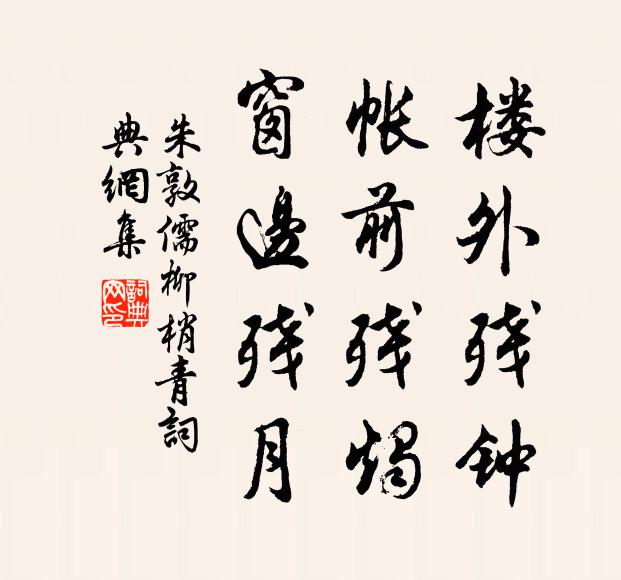 楼外残钟
帐前残烛
窗邊残月
朱敦儒柳梢青詞
典網集
詞典网印